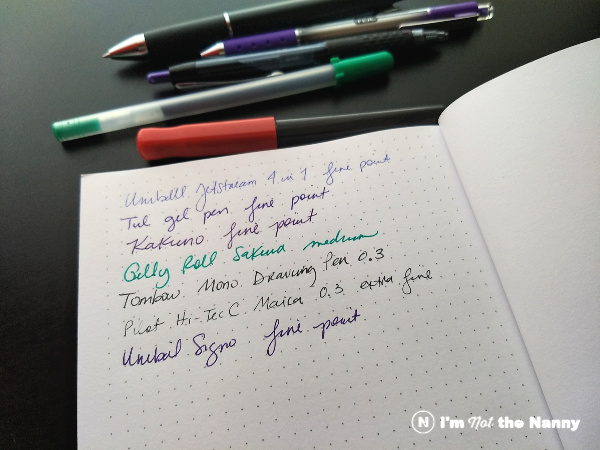 Uniball Jetstream 4 in 1 fine point
Tul gel pen fine point
Kakuno fine point
Gelly Roll Sakura medium
Tombow Mono Drawing Pen 0.3
Pilot Hi-Tec C Maica 0.3 extra fine
Uniball Signo fine point
N I'm Not the Nanny